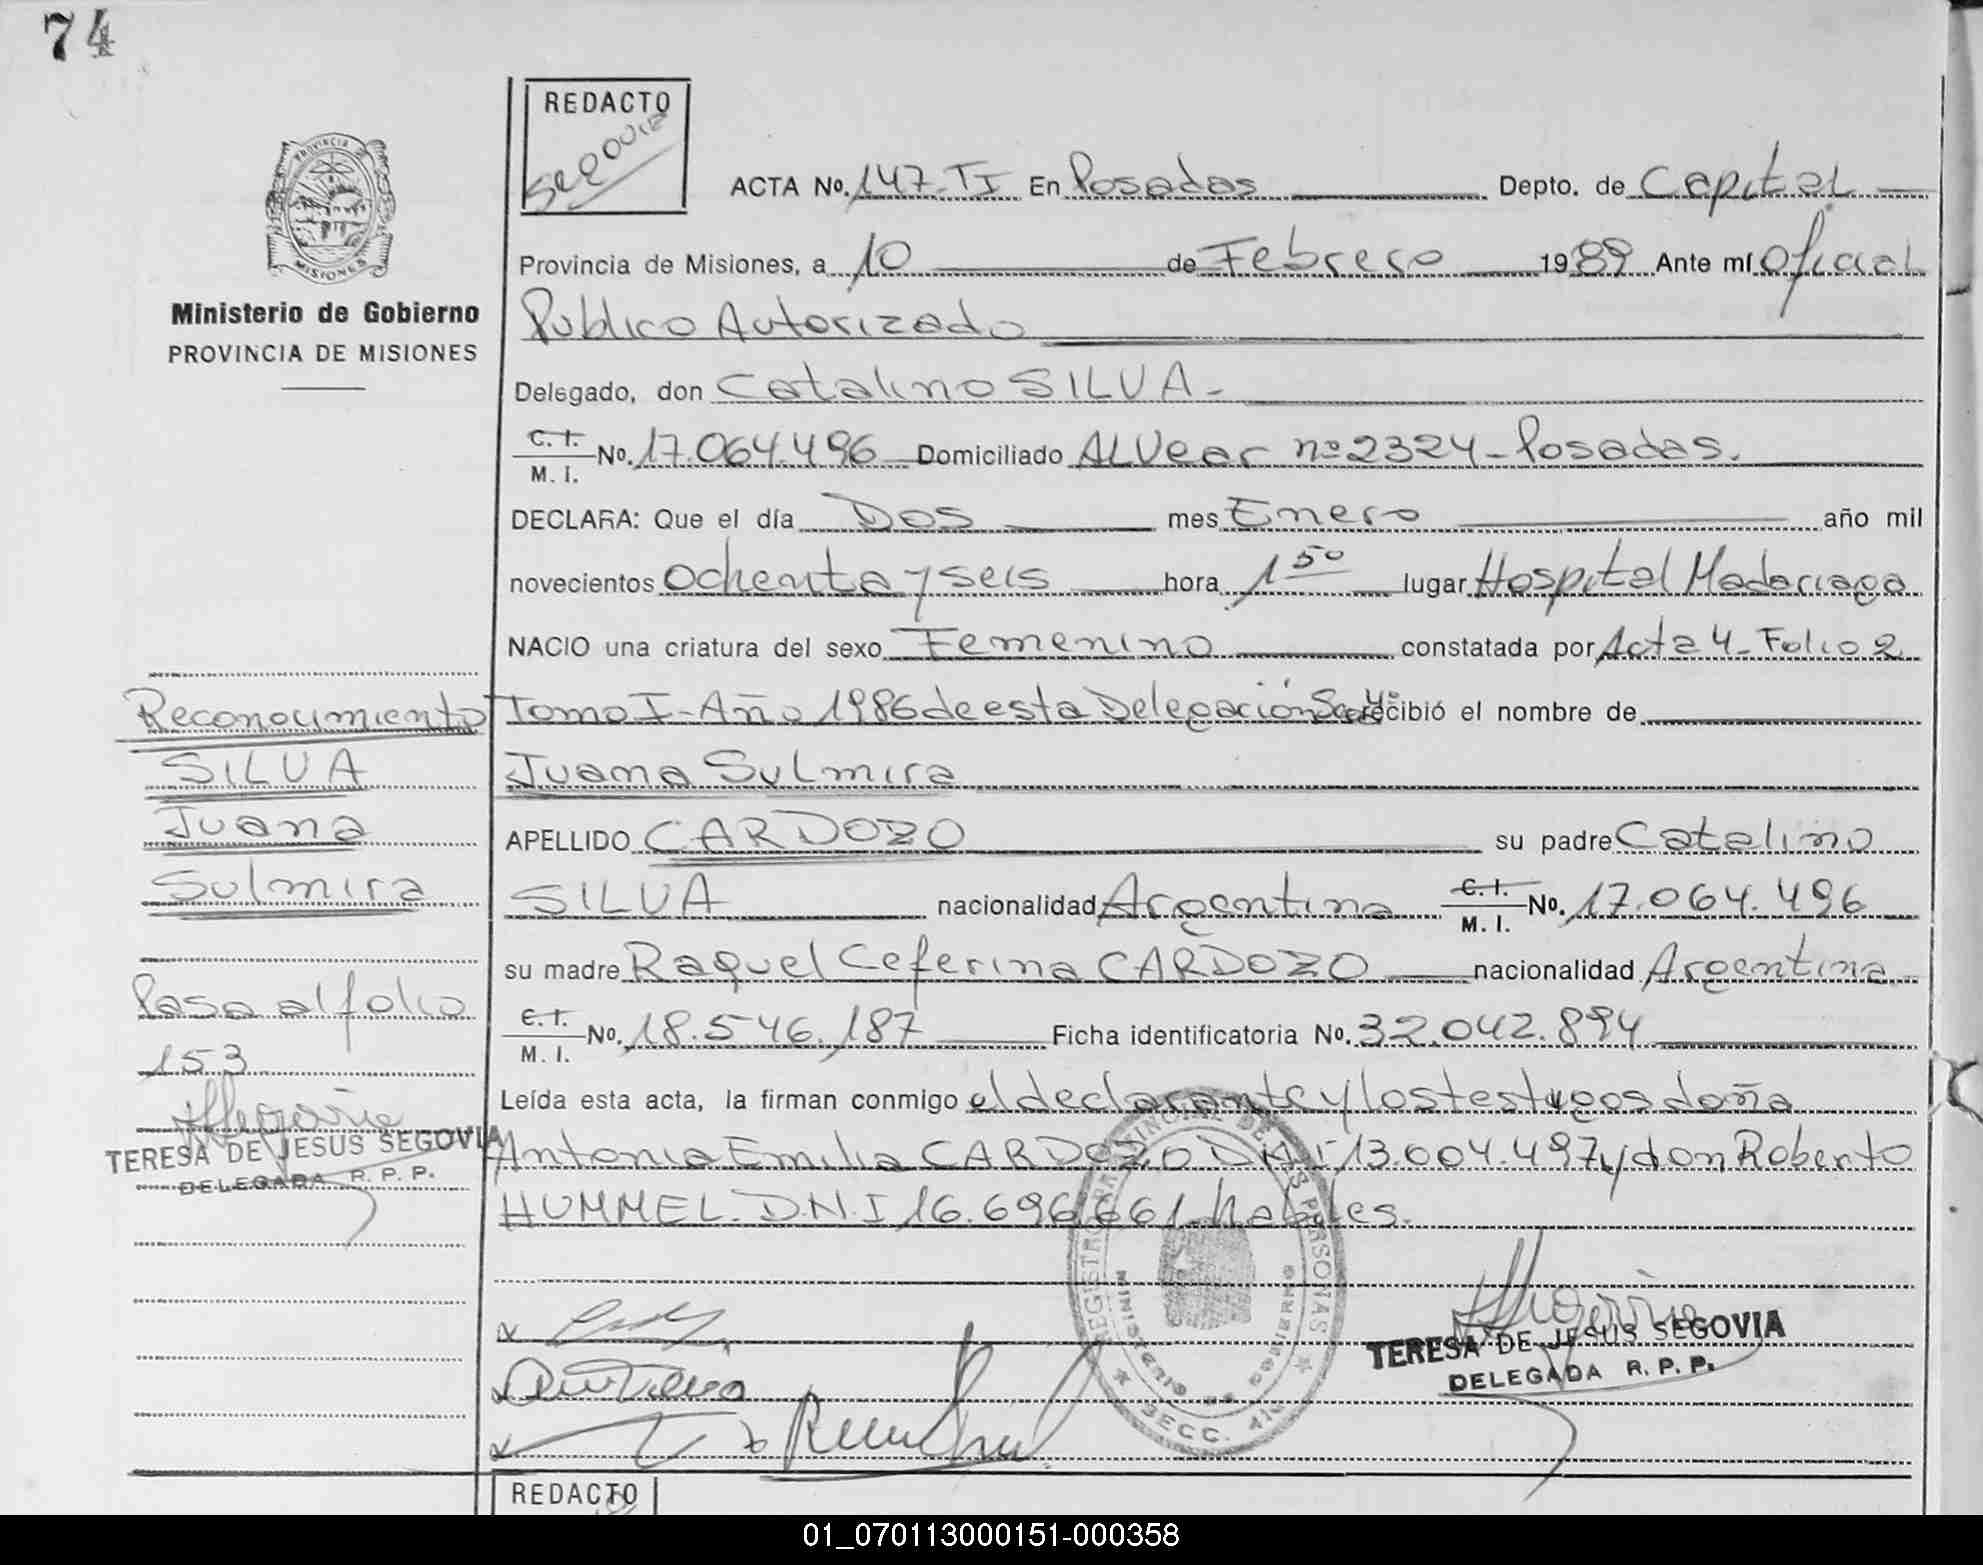 74
REDACTO
Segovia
ACTA No. 147-TI En Posadas Depto. de Capital
Provincia de Misiones, a 10 de Febrero 1989 Ante mí Oficial
Publico Autorizado
Delegado, don Catalino SILVA.-
C. I. M. I. No. 17.064.496 Domiciliado ALVear nº 2324 - Posadas.
DECLARA: Que el día Dos mes Enero año mil
novecientos ochenta y seis hora 1 50 lugar Hospital Madariaga
NACIO una criatura del sexo Femenino constatada por Acta 4- Folio 2
Tomo I- Año 1986 de esta Delegación Secc recibió el nombre de
Juana Sulmira
APELLIDO CARDOZO su padre Catalino
SILVA nacionalidad Argentina C. I. M. I. No. 17.064.496
su madre Raquel Ceferina CARDOZO nacionalidad Argentina
C. I. M. I. No. 18.546.187 Ficha identificatoria No. 32.042.894
Leída esta acta, la firman conmigo el declarante y los testigos doña
Antonia Emilia CARDOZO D.N.I 13.004.497 y don Roberto
HUMMEL. D.N.I 16.696.661 habiles.
PROVINCIA DE
MISIONES
Ministerio de Gobierno
PROVINCIA DE MISIONES
Reconocimiento
SILVA
Juana
Sulmira
Pasa al folio
153
TERESA DE JESUS SEGOVIA
DELEGADA R. P. P.
REGISTRO PROVINCIAL DE LAS PERSONAS
MINISTERIO DE GOBIERNO
SECC. 4ta
TERESA DE JESUS SEGOVIA
DELEGADA R. P. P.
REDACTO
01_070113000151-000358